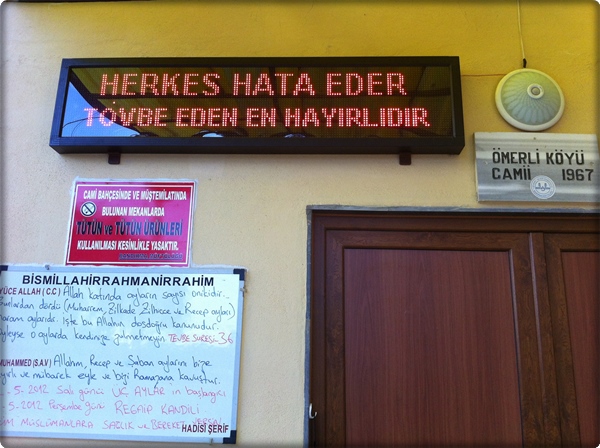 HERKES HATA EDER
TÖVBE EDEN EN HAYIRLIDIR
ÖMERLİ KÖYÜ
CAMİİ 1967
CAMİ BAHÇESİNDE VE MÜŞTEMİLATINDA
BULUNAN MEKANLARDA
TÜTÜN ve TÜTÜN ÜRÜNLERİ
KULLANILMASI KESİNLİKLE YASAKTIR.
BİSMİLLAHİRRAHMANİRRAHİM
YÜCE ALLAH (C.C) Allah katında ayların sayısı onikidir..
Bunlardan dördü (Muharrem, Zilkade Zilhicce ve Recep ayları)
haram aylarıdır. İşte bu Allahın dosdoğru kanunudur.
öyleyse o aylarda kendinize zulmetmeyin TEVBE SURESİ. 36
MUHAMMED (S.A.V) Allahım, Recep ve Şaban aylarını bize
hayırlı ve mübarek eyle ve bizi Ramazana kavuştur.
5-2012 Salı günü ÜÇ AYLAR ın başlangıcı
5-2012 Perşembe günü REGAİP KANDİLİ
TÜM MÜSLÜMANLARA SAĞLIK ve BEREKET VERSİN
HADİSİ ŞERİF